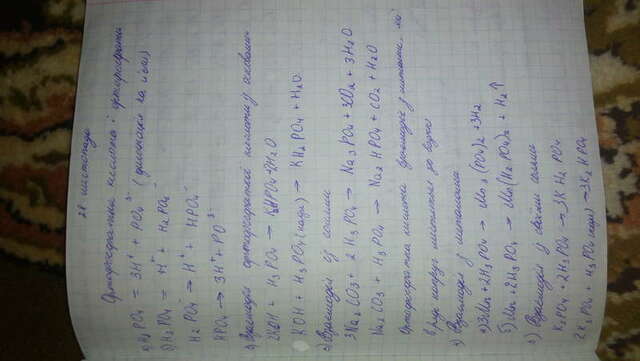 28 листопада
Ортофосфатна кислота і ортофосфати
а) H3PO4 = 3H+ + PO4 3-
б) H3PO4 = H+ + H2PO4-
H2PO4- → H+ + HPO4-
HPO4 → 3H+ + PO 3-
ортофосфатної кислоти з основами
2KOH + H3PO4 → K2HPO4 + 2H2O
KOH + H3PO4 → KH2PO4 + H2O
Взаємодія із солями
3Na2CO3 + 2H3PO4 → Na3PO4 + 3CO2 + 3H2O
Na2CO3 + H3PO4 → Na2HPO4 + CO2 + H2O
Ортофосфатна кислота взаємодіє з металами, що
в ряді напруг металів до водню
Взаємодія з металами
а) 3Mn + 2H3PO4 → Mn3(PO4)2 + 3H2
б) Mn + 2H3PO4 → Mn(H2PO4)2 + H2↑
Взаємодія з своїми солями
K3PO4 + 2H3PO4 → 3KH2PO4
2K3PO4 + H3PO4 → 3K2HPO4